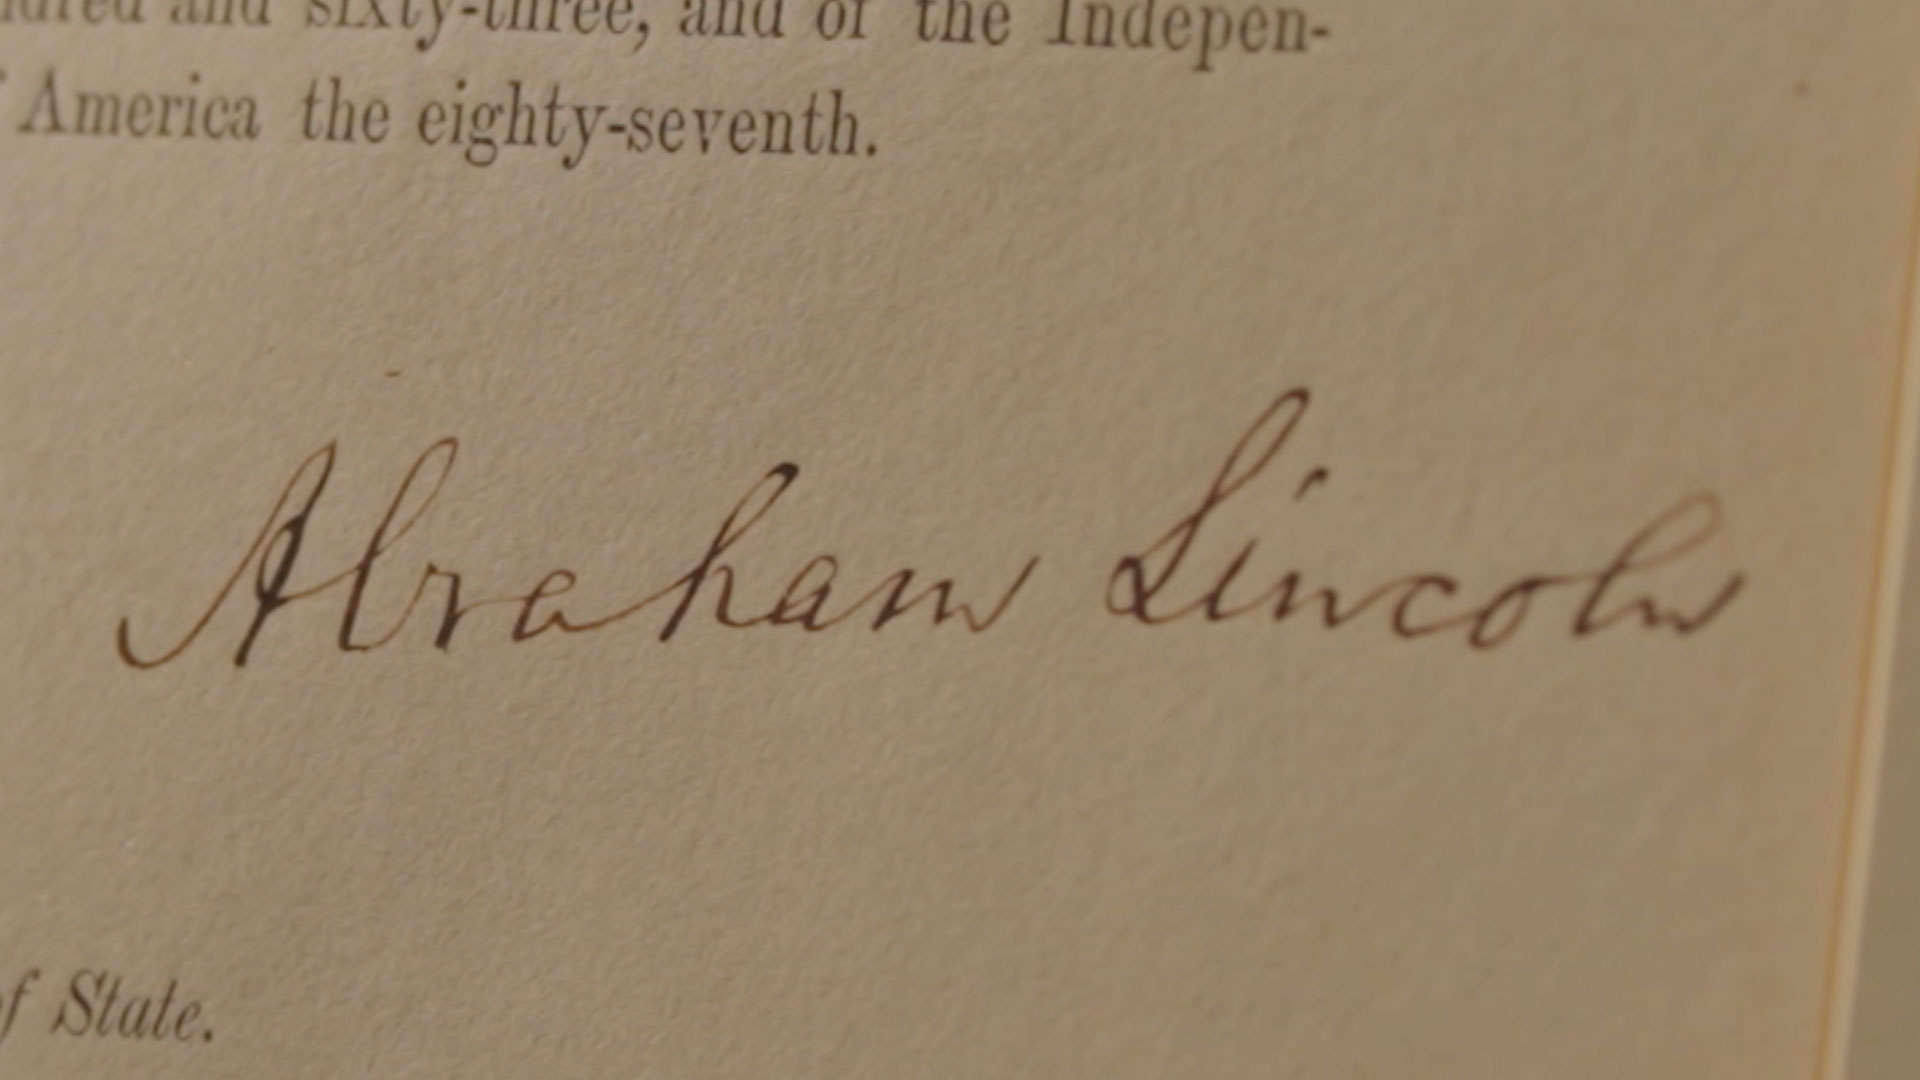 dred and sixty-three, and of the Indepen-
America the eighty-seventh.
Abraham Lincoln
of State.